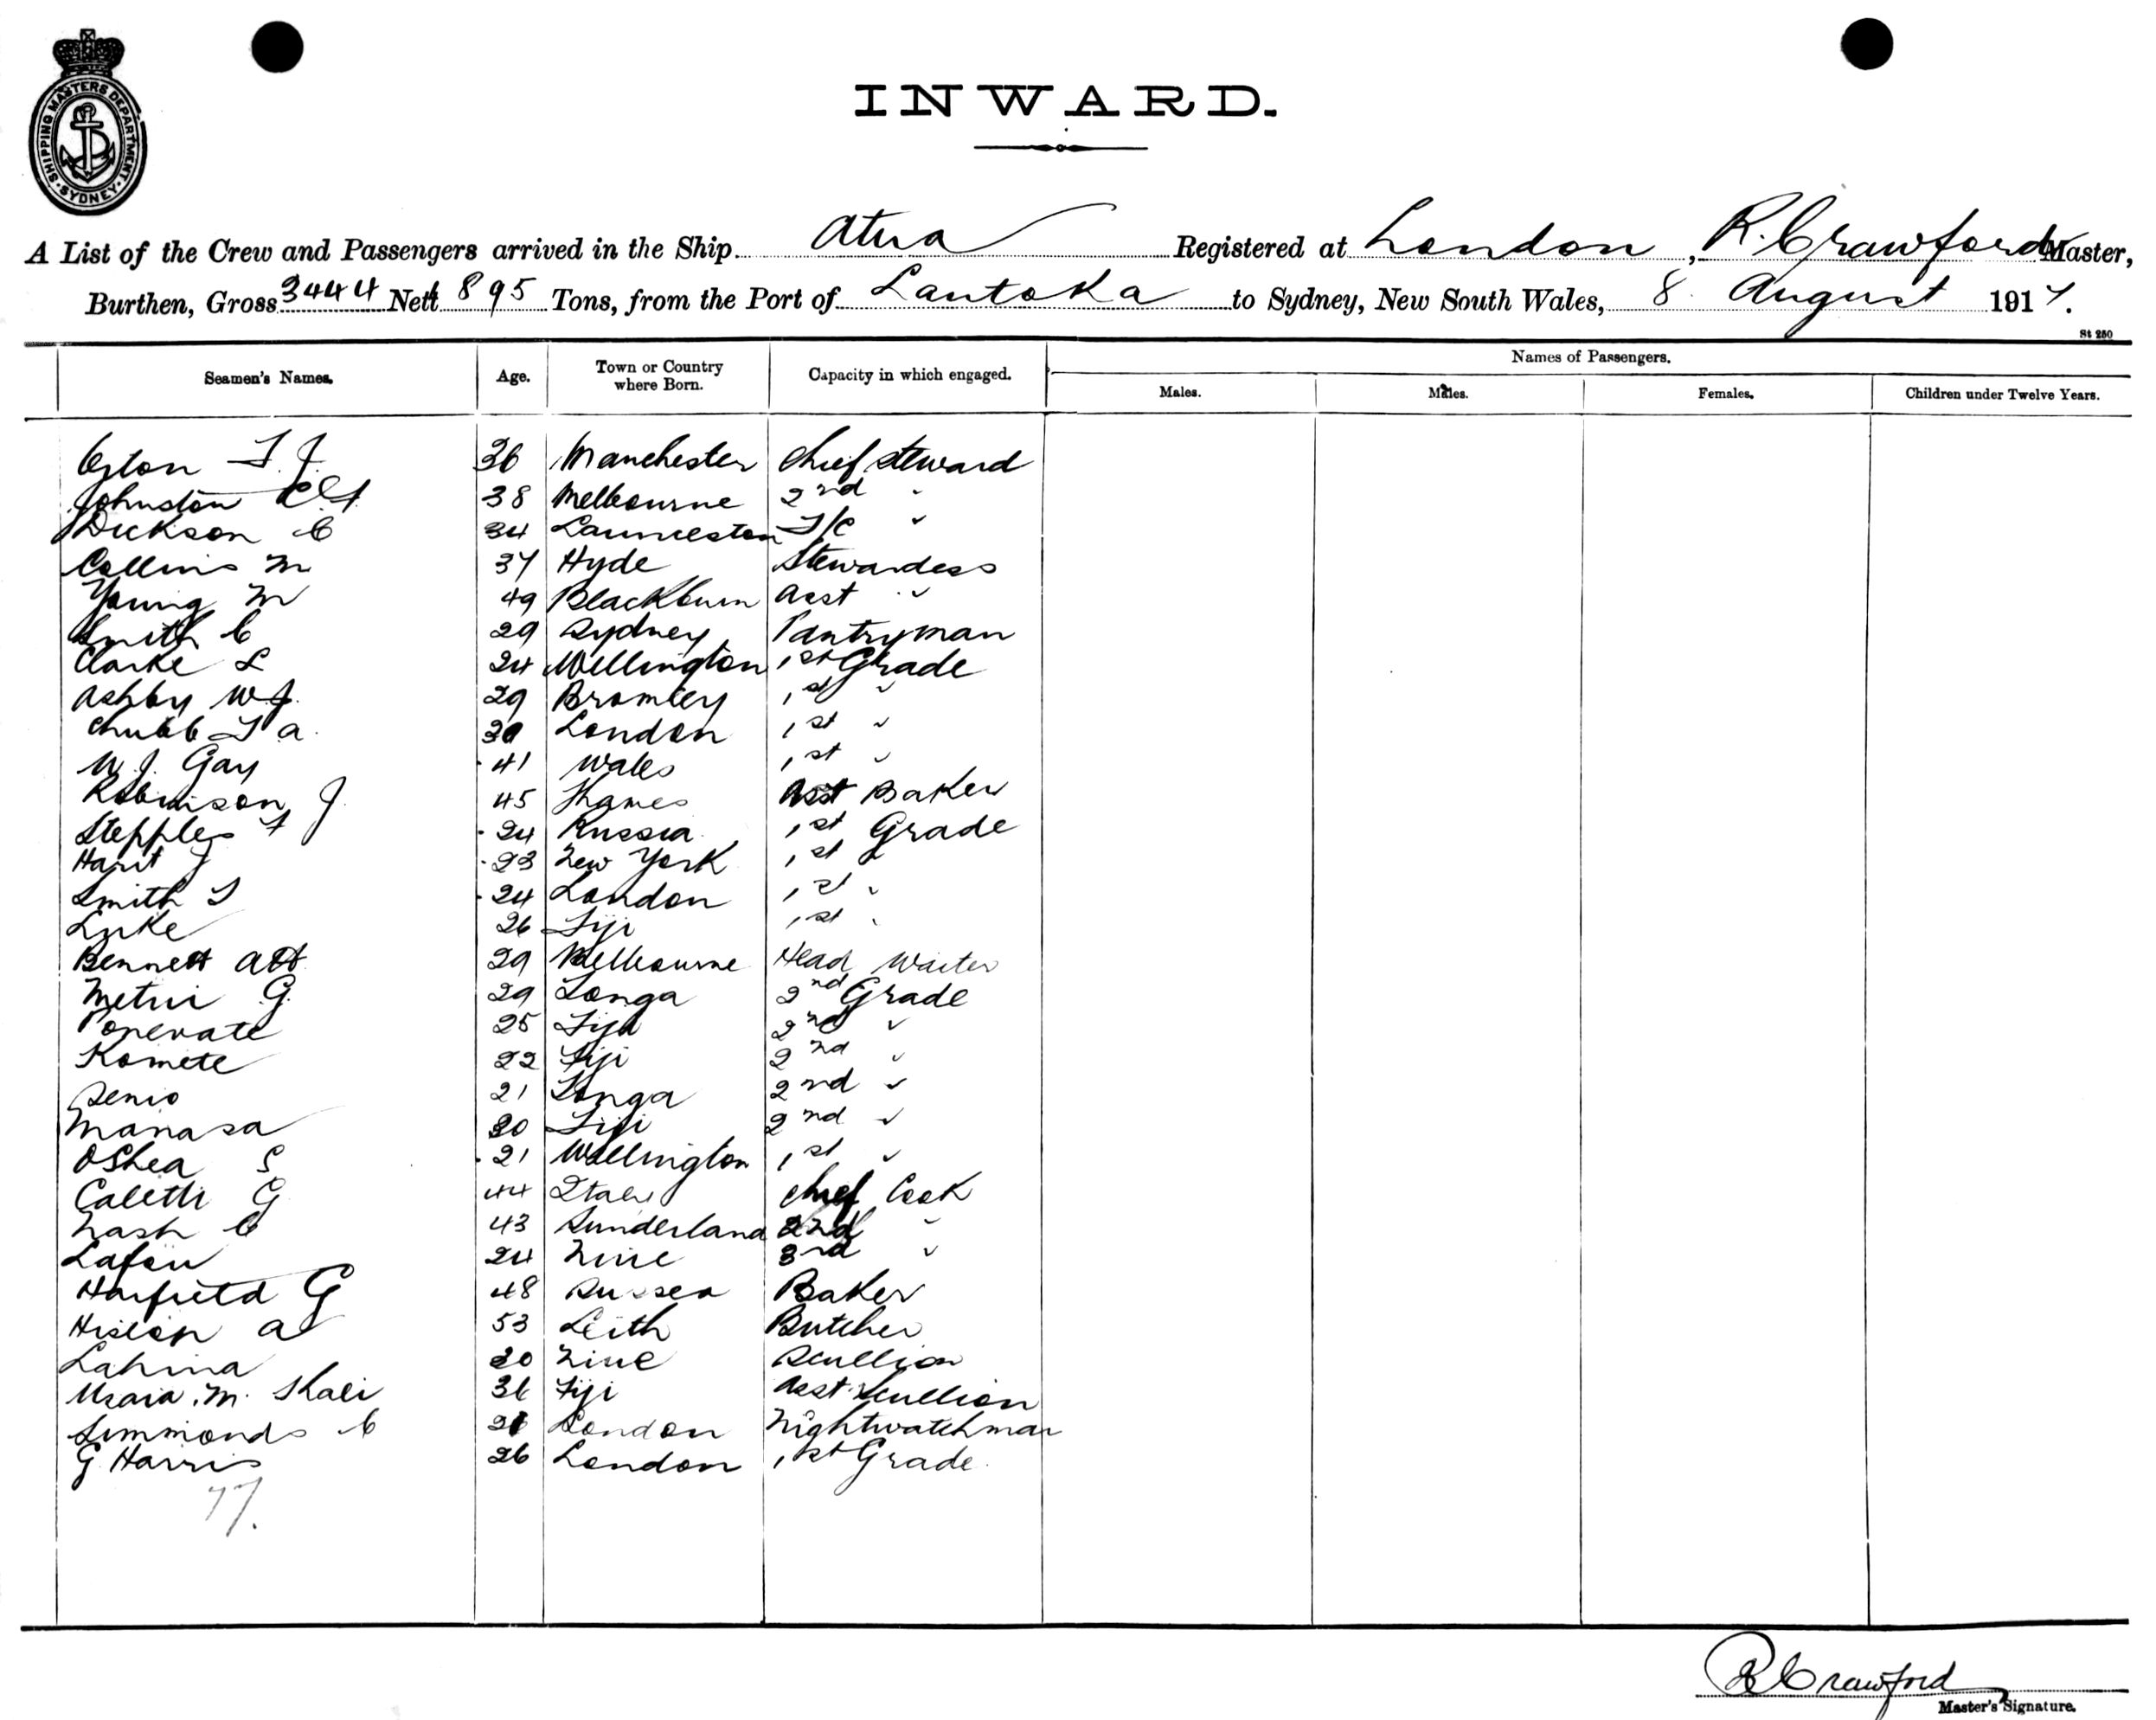 SHIPPING MASTERS DEPARTMENT. SYDNEY.
INWARD.
A List of the Crew and Passengers arrived in the Ship Atua Registered at London, R. Crawford Master,
Burthen, Gross 3444 Nett 895 Tons, from the Port of Lautoka to Sydney, New South Wales, 8 August 1917.
St 250
Seamen's Names. Age. Town or Country where Born. Capacity in which engaged. Names of Passengers.
Males. Males. Females. Children under Twelve Years.
36 Manchester Chief Steward
Johnston 38 Melbourne 2nd "
Dickson C 34 Launceston T/C "
Collins M 37 Hyde Stewardess
Young M 49 Blackburn Asst "
Smith C 29 Sydney Pantryman
Clarke L 24 Wellington 1st Grade
Ashby W.J. 29 Bromley 1st "
Chubb T A. London 1st "
W.J. Gay 41 Wales 1st "
Robinson J. 45 Thames Asst Baker
24 Russia 1st Grade
Hart J 23 New York 1st "
Smith T 24 London 1st "
Luke 26 Fiji 1st "
Bennett 29 Melbourne Head Waiter
Metui G. 29 Tonga 2nd Grade
Ponerate 25 Fiji 2nd "
Komete 22 Fiji 2nd "
Senio 21 Tonga 2nd "
Manasa 20 Fiji 2nd "
OShea S 21 Wellington 1st "
Caletti G 44 Italy Chief Cook
Nash C 43 Sunderland 2nd "
24 Niue 3rd "
Harfield G 48 Sussex Baker
Hislop A 53 Leith Butcher
Lahina 20 Niue Scullion
M. 36 Fiji Asst Scullion
Simmonds C 21 London Nightwatchman
G Harris 26 London 1st Grade.
77.
R Crawford
Master's Signature.